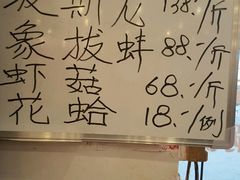 斯 138./斤
象拔蚌 88./斤
虾菇 68./斤
花蛤 18./例